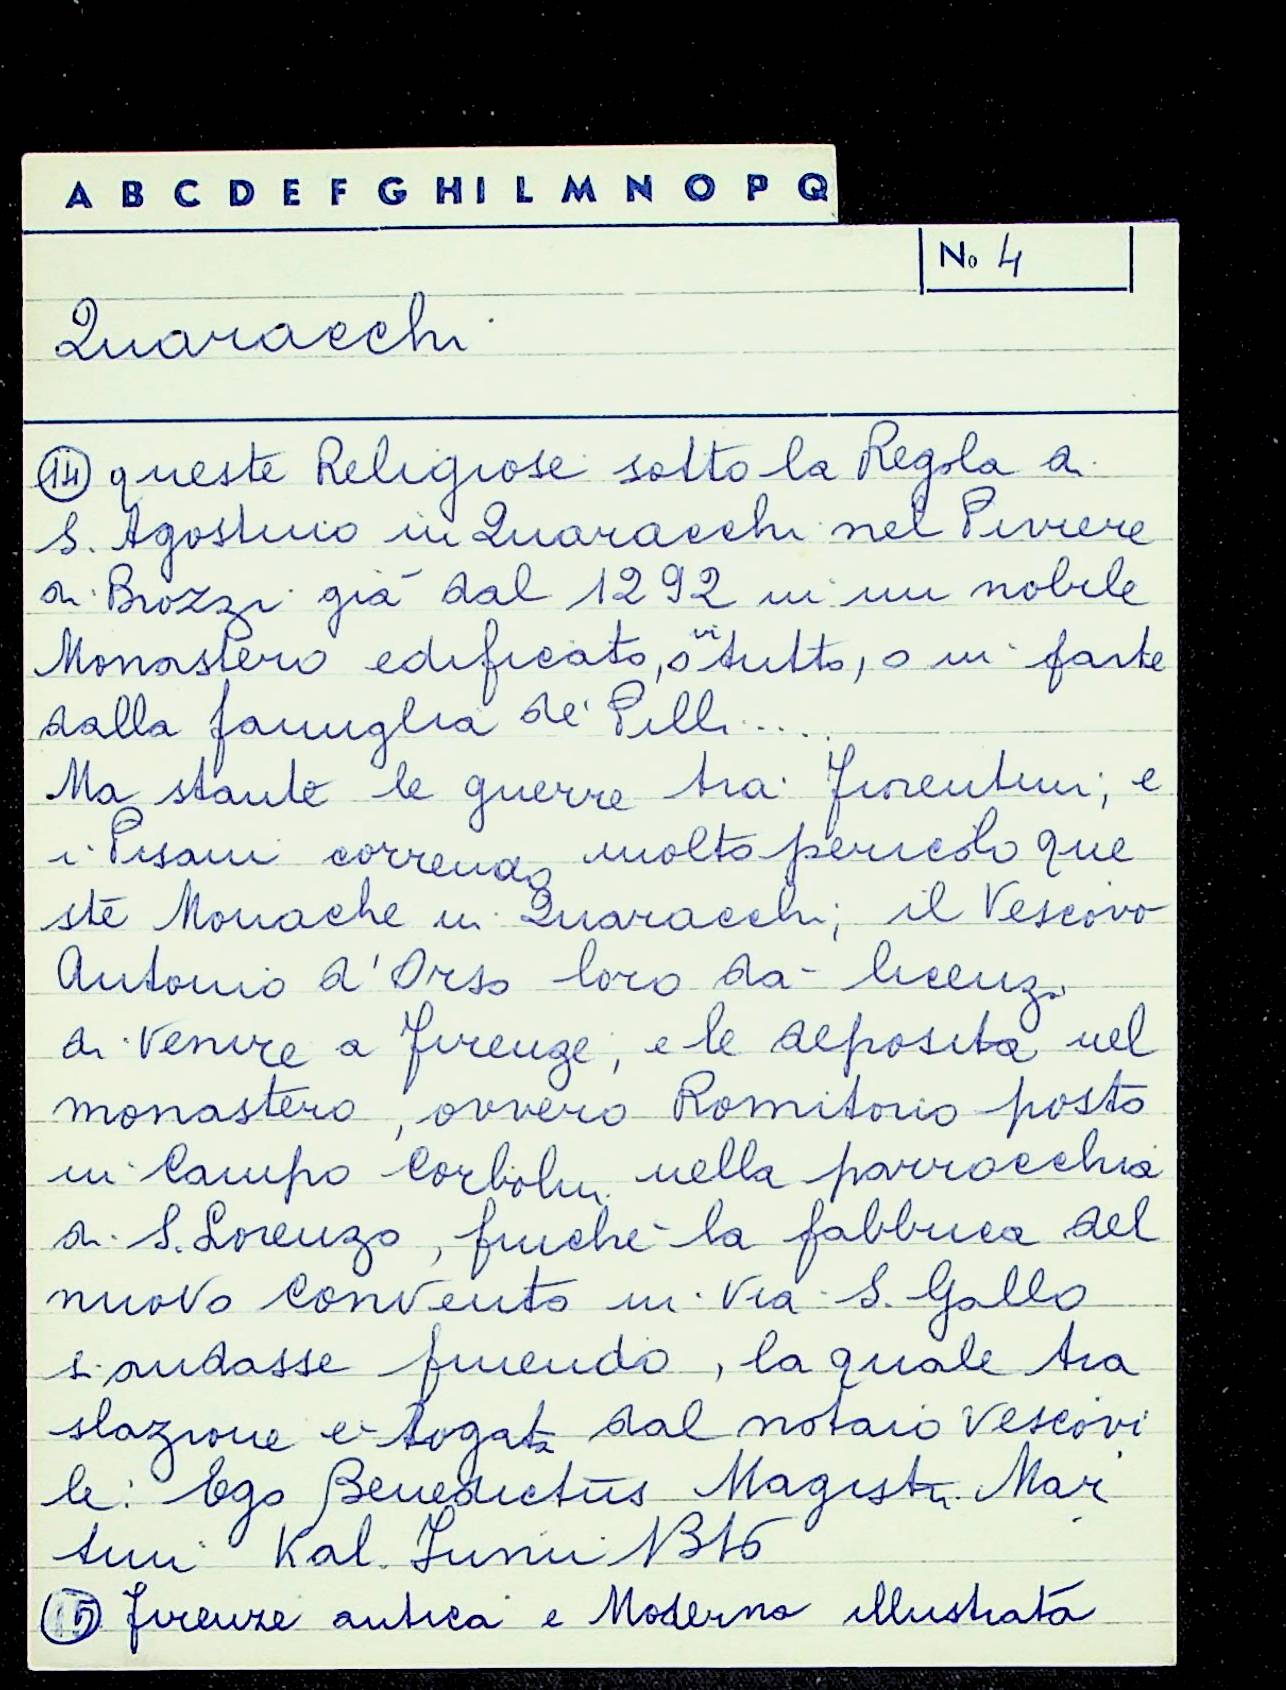 A B C D E F G H I L M N O P Q
No 4
Quaracchi
14 queste Religiose sotto la Regola di
S. Agostino in Quaracchi nel Piviere
di Brozzi già dal 1292 in un nobile
Monastero edificato, o in tutto, o in parte
dalla famiglia de' Pilli....
Ma stante le guerre tra Fiorentini, e
i Pisani correndo molto pericolo que
ste Monache in Quaracchi; il Vescovo
Antonio d'Orso loro dà licenza
di venire a Firenze, e le deposita nel
monastero, ovvero Romitorio posto
in Campo Corbolini nella parrocchia
di S. Lorenzo, finché la fabbrica del
nuovo Convento in Via S. Gallo
si andasse finendo, la quale tra
slazione è rogata dal notaio Vescovi
le: Ego Benedictus Magistri Mar
tini Kal. Junii 1316
15 Firenze antica e Moderna illustrata